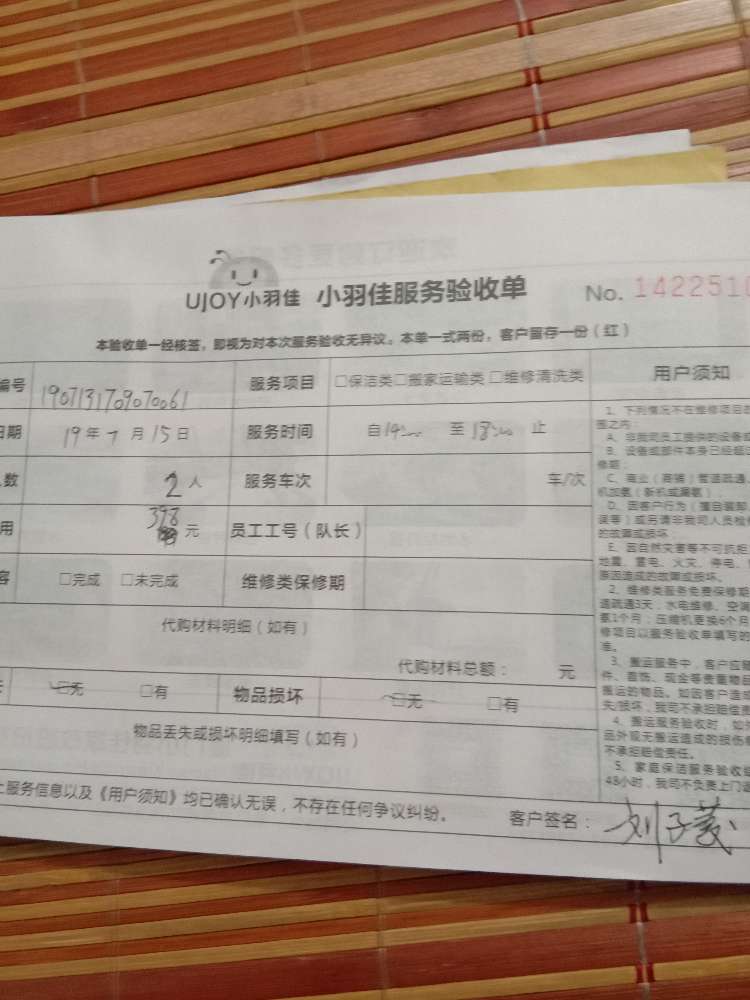 UJOY小羽佳 小羽佳服务验收单 No. 1422510
本验收单一经核签，即视为对本次服务验收无异议。本单一式两份，客户留存一份（红）
编号 1907131709070061 服务项目 □保洁类□搬家运输类 □维修清洗类 用户须知
日期 19年7月15日 服务时间 自14:00 至18:00 止
数 2人 服务车次 车/次
用 398元 员工工号（队长）
容 □完成 □未完成 维修类保修期
代购材料明细（如有）
代购材料总额： 元
□无 □有 物品损坏 □无 □有
物品丢失或损坏明细填写（如有）
上服务信息以及《用户须知》均已确认无误，不存在任何争议纠纷。 客户签名：
1、下列情况不在维修项目
围之内：
A、非我司员工提供的设备
B、设备或部件本身已经超
修期；
C、商业（商铺）管道疏通、
机加氨（新机或漏氨）；
D、因客户行为（擅自装卸
误等）或另请非我司人员检
的故障或损坏；
E、因自然灾害等不可抗拒
地震、雷电、火灾、停电、
原因造成的故障或损坏。
2、维修类服务免费保修期
道疏通3天；水电维修、空调
氨1个月；压缩机更换6个月
修项目以服务验收单填写的
准。
3、搬运服务中，客户应
件、首饰、现金等贵重物品
搬运的物品。如因客户造成
失/损坏，我司不承担赔偿责
4、搬运服务验收时，如
品外观无搬运造成的损伤
不承担赔偿责任。
5、家庭保洁服务验收
48小时，我司不负责上门